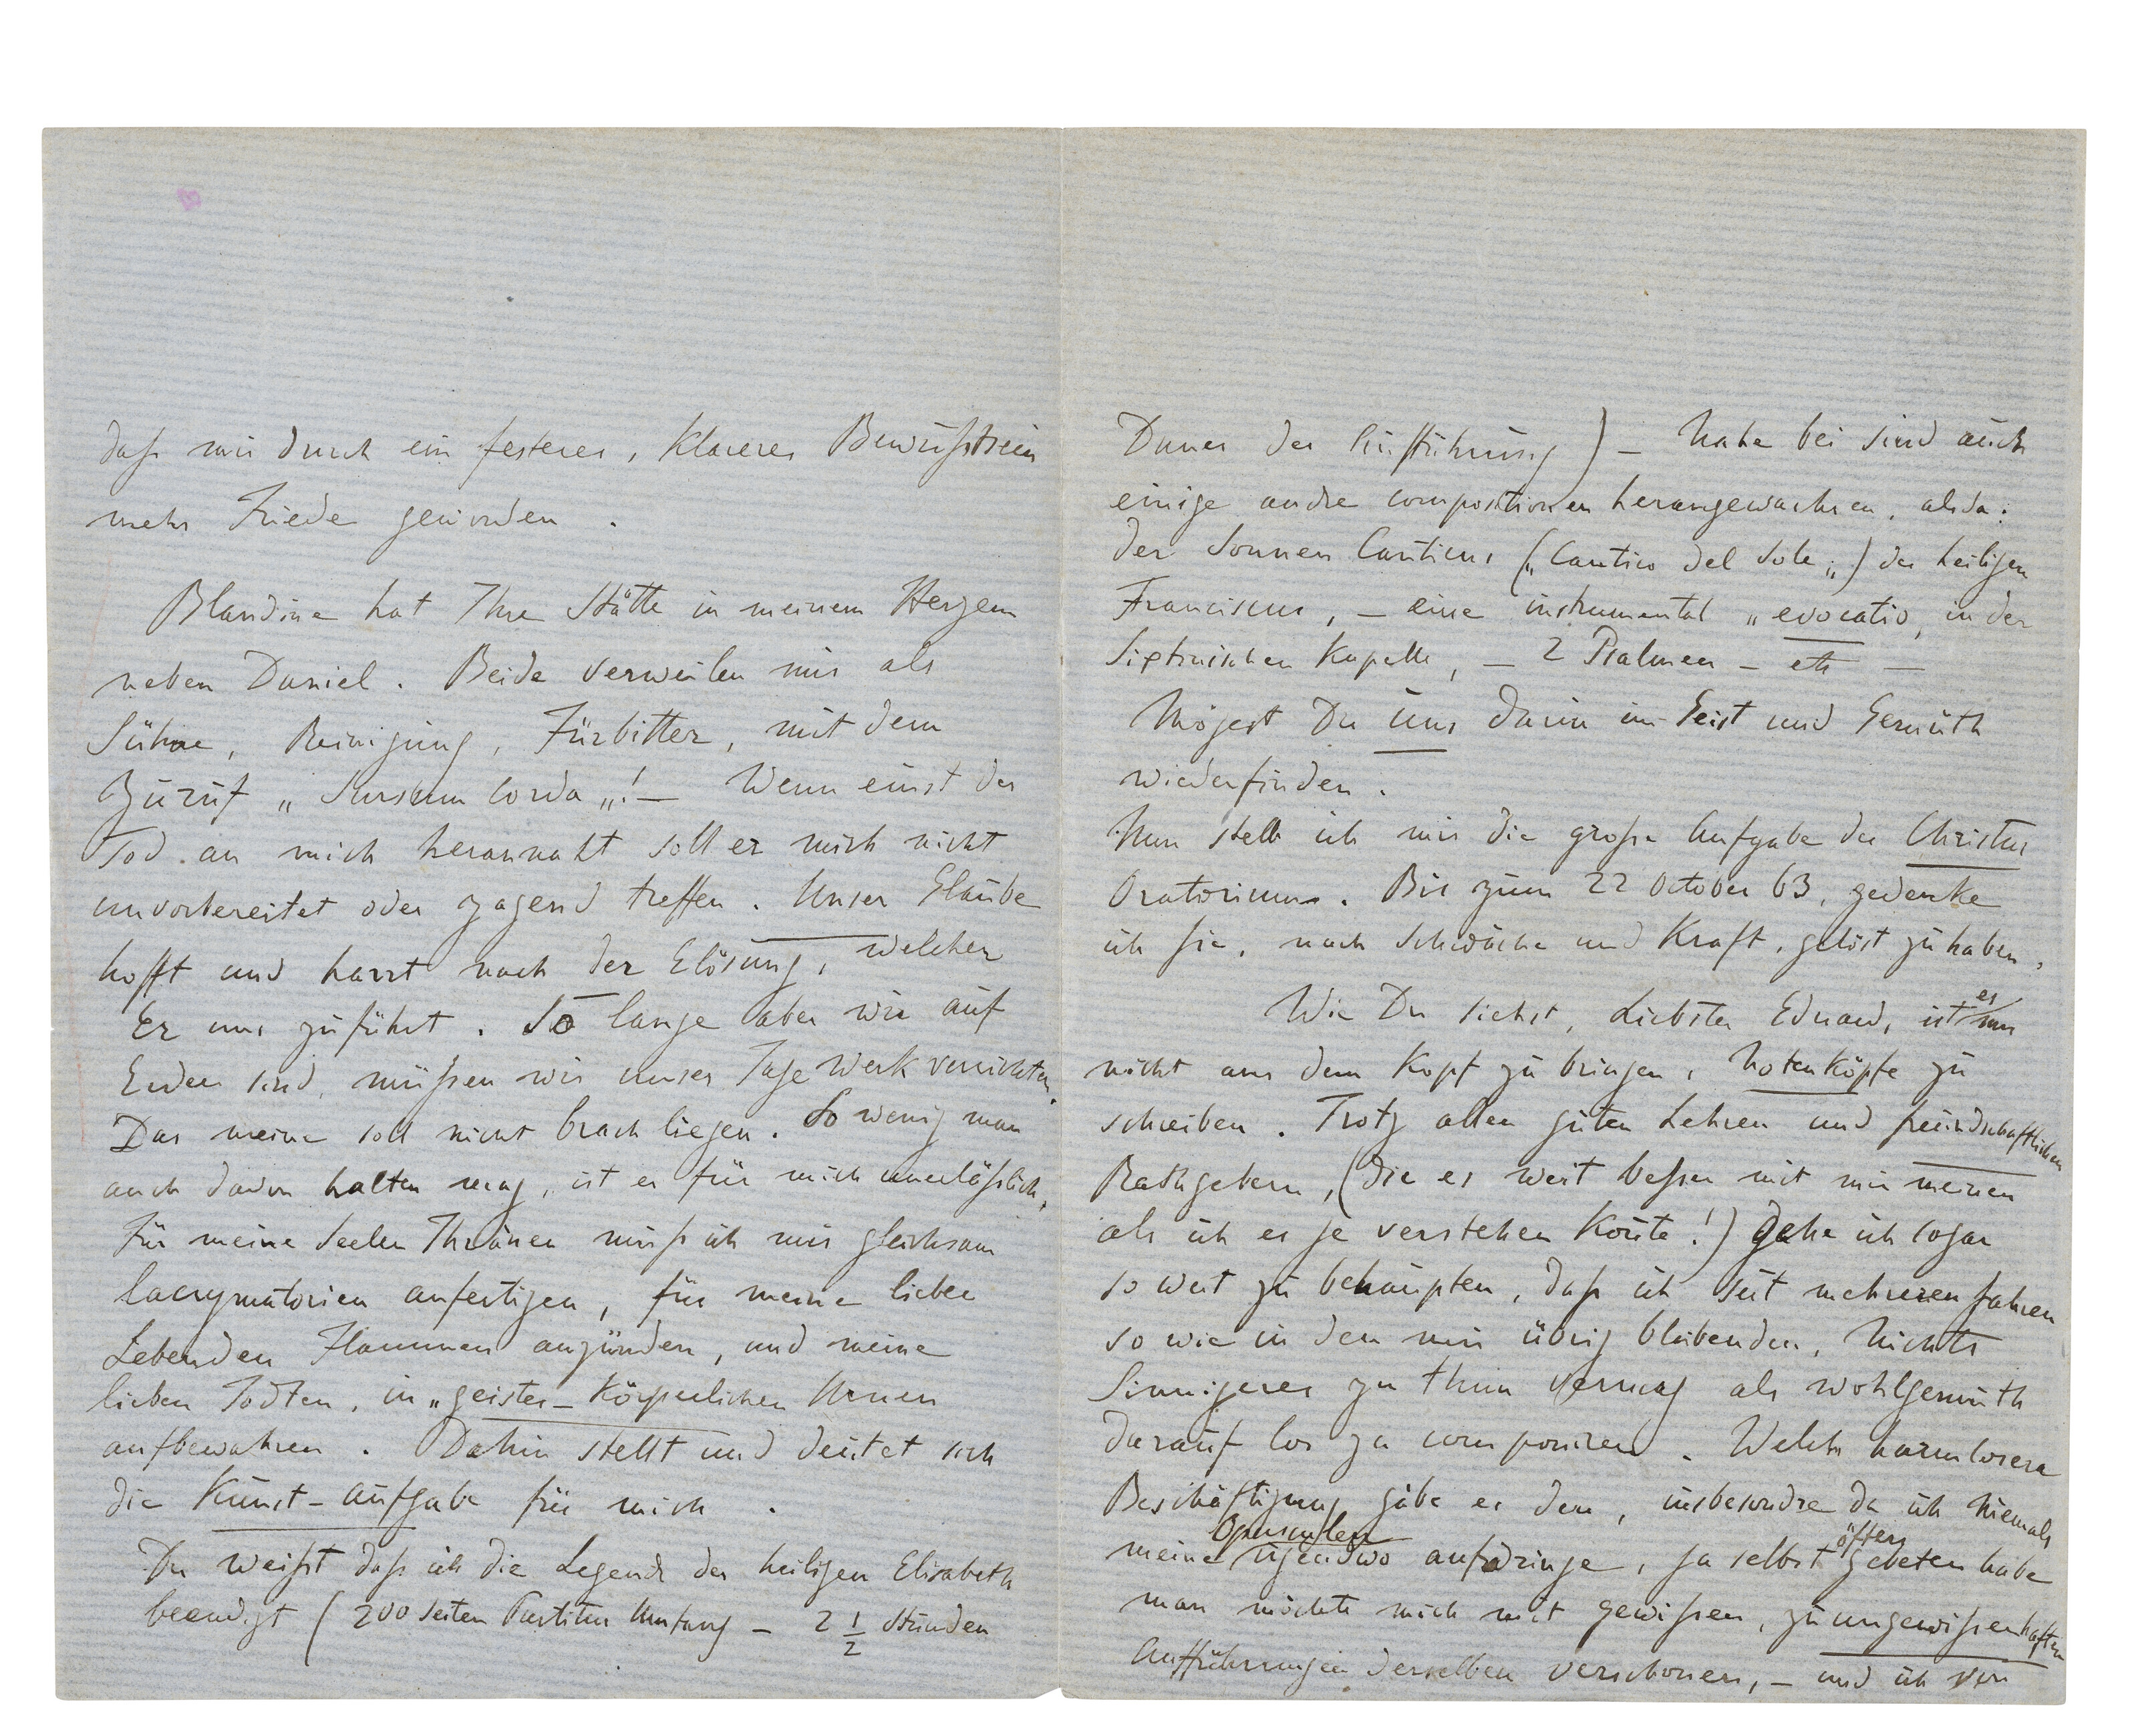 daß mir durch ein festeres, klareres Bewußtsein
mehr Friede geworden.
Blandine hat Ihre Stätte in meinem Herzen
neben Daniel. Beide verweilen mir als
Sühne, Reinigung, Fürbitter, mit dem
Zuruf „Sursum Corda„! — Wenn einst der
Tod an mich herannaht soll er mich nicht
unvorbereitet oder zagend treffen. Unser Glaube
hofft und harrt nach der Elösung, welcher
Er uns zuführt. So lange aber wir auf
Erden sind, müßen wir unser Tage Werk verrichten.
Das meine soll nicht brach liegen. So wenig man
auch davon halten mag, ist es für mich unerläßlich.
Für meine Seelen Thränen muß ich mir gleichsam
Lacrymatorien anfertigen, für meine lieben
Lebenden Flammen anzünden, und meine
lieben Todten, in „geister-körperlichen Urnen
aufbewahren. Dahin stellt und deutet sich
die Kunst-Aufgabe für mich.
Du weißt daß ich die Legende der heiligen Elisabeth
beendigt (200 Seiten Partitur Umfang — 2 1/2 Stunden
Dauer der Aufführung) — Nahe bei sind auch
einige andre compositionen herangewachsen, als da:
der Sonnen Canticus („Cantico del Sole„) des heiligen
Franciscus, — eine instrumental „evocatio, in der
Sixtinischen Kapelle, — 2 Psalmen — etc —
Mögest Du uns darin im Geist und Gemüth
wiederfinden.
Nun stelle ich mir die große Aufgabe des Christus
Oratoriums. Bis zum 22 October 63, gedenke
ich sie, nach Schwäche und Kraft, gelöst zu haben.
Wie Du siehst, Liebster Eduard, ist es mir
nicht aus dem Kopf zu bringen, Notenköpfe zu
schreiben. Trotz allen guten Lehren und freundschaftlichen
Rathgebern, (die es weit beßer mit mir meinen
als ich es je verstehen konte!) gehe ich sogar
so weit zu behaupten, daß ich seit mehreren Jahren
so wie in den mir übrig bleibenden, Nichts
Sinnigeres zu thun vermag als wohlgemuth
darauf los zu componiren. Welch harmlosere
Beschäftigung gäbe es den, insbesondre da ich niemals
meine Opusculen irgendwo aufdringe, ja selbst öfters gebeten habe
man möchte mich mit gewißen, zu ungewißenhaften
Aufführungen derselben verschonen, — und ich von